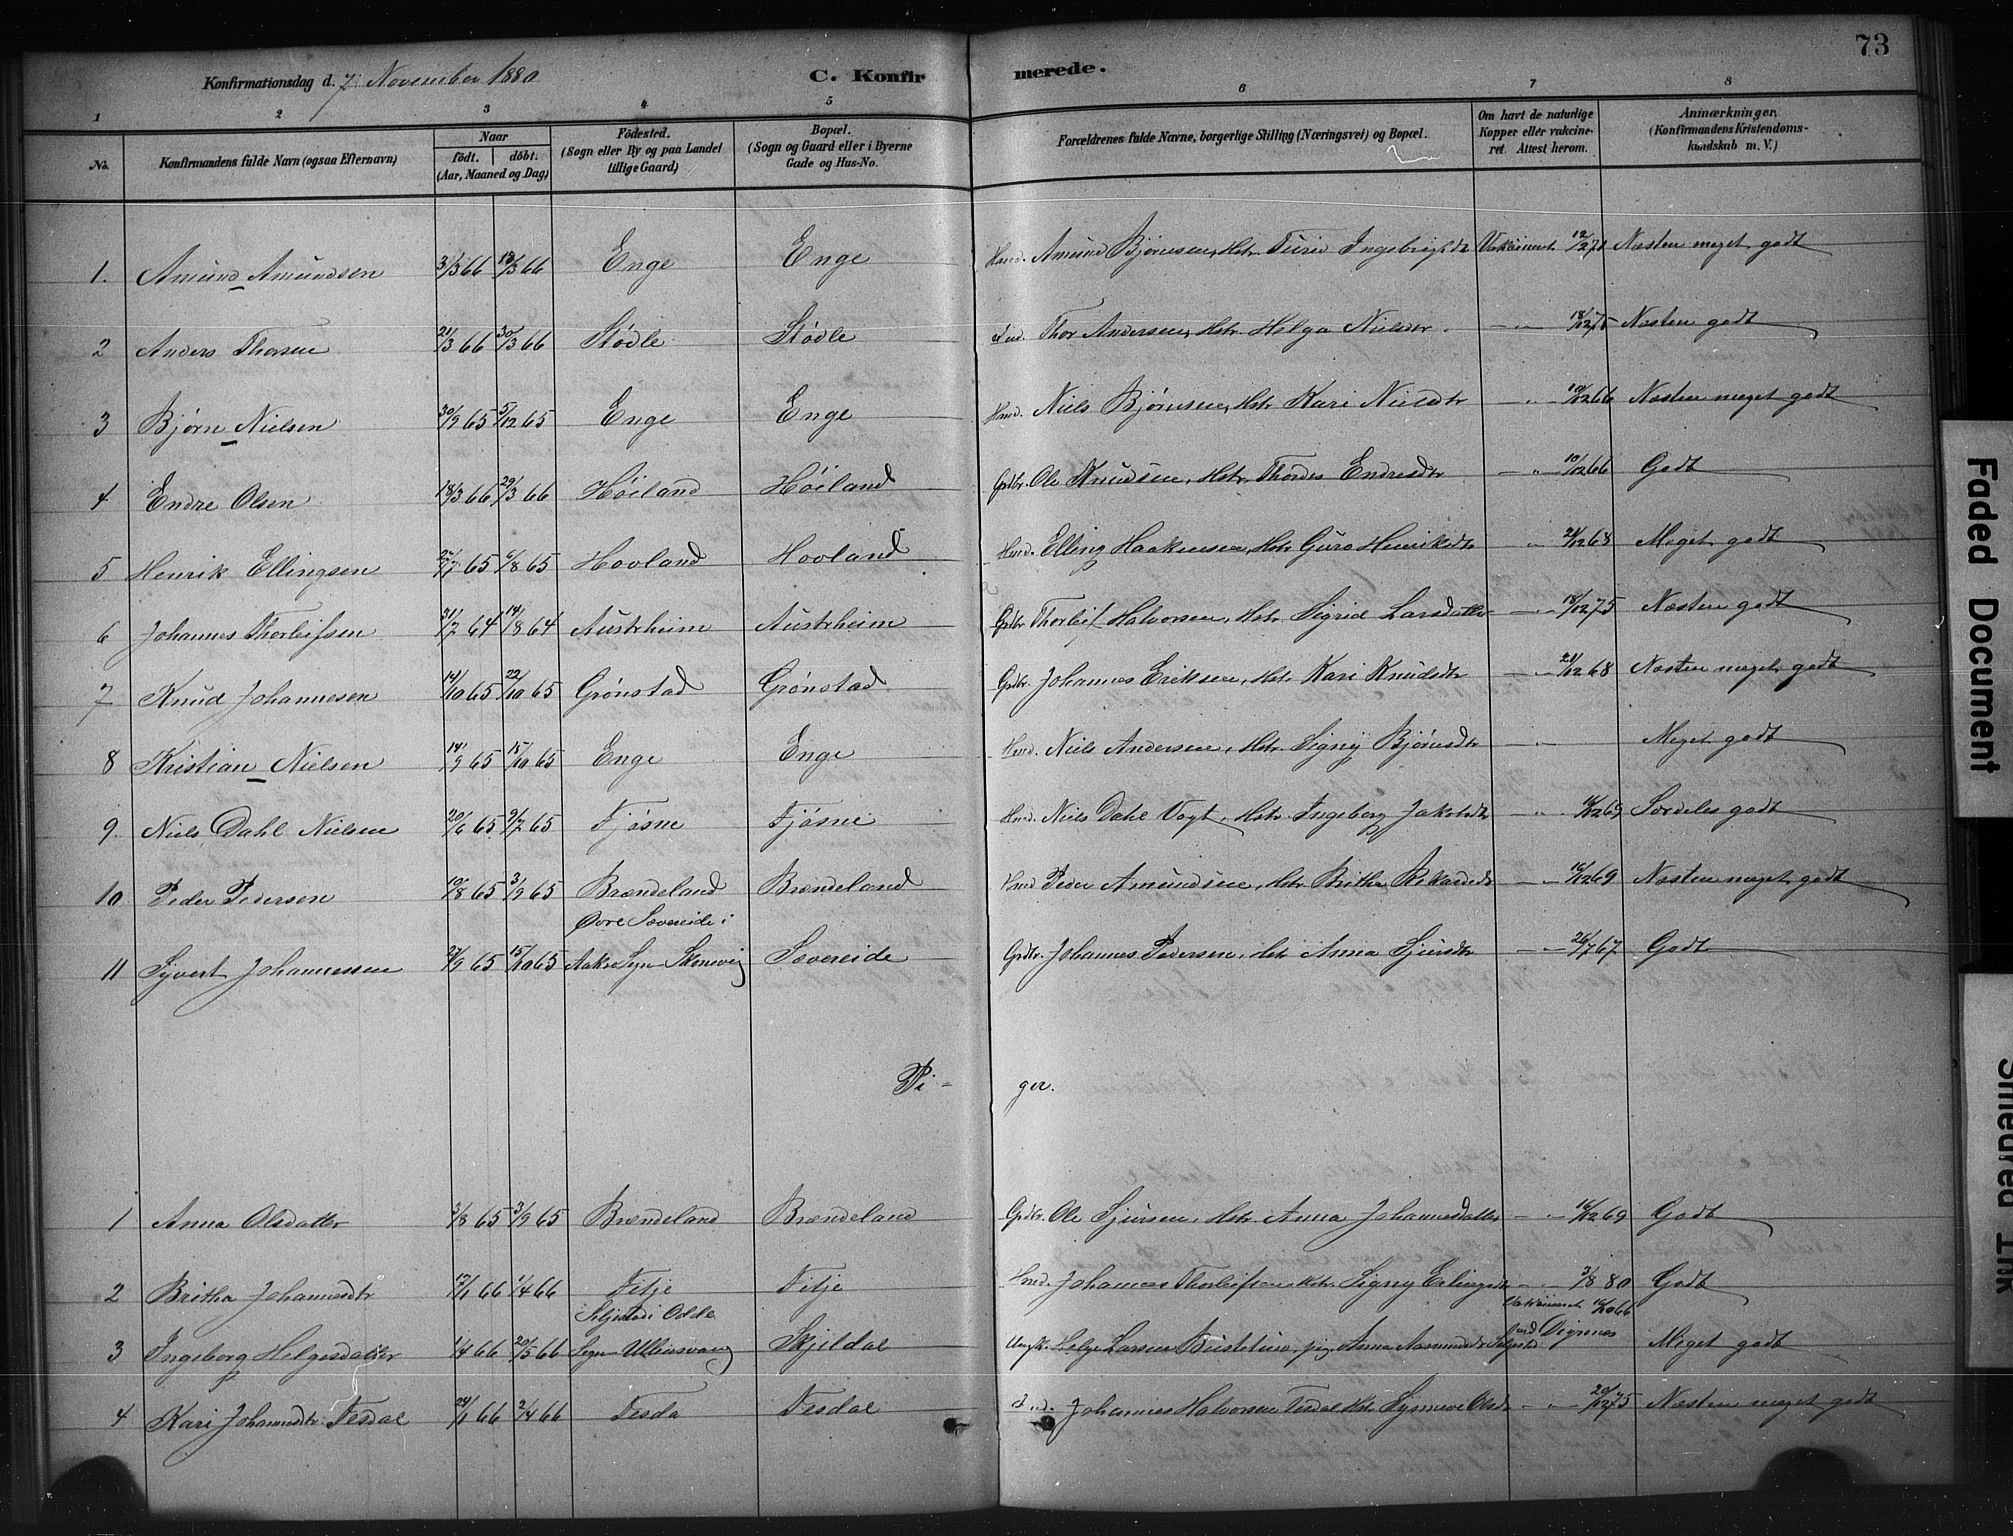 73
Konfirmationsdag d. 7. November 1880 C. Konfirmerede.
1 2 3 4 5 6 7 8
No. Konfirmandens fulde Navn (ogsaa Efternavn) Naar födt. döbt. (Aar, Maaned og Dag) Födested. (Sogn eller By og paa Landet tillige Gaard) Bopæl. (Sogn og Gaard eller i Byerne Gade og Hus-No. Forældrenes fulde Navne, borgerlige Stilling (Næringsvei) og Bopæl. Om havt de naturlige Kopper eller vakcineret. Attest herom. Anmærkninger. (Konfirmandens Kristendomskundskab m. V.)
1. Amund Amundsen 3/3 66 18/3 66 Enge Enge Hmd. Amund Bjørnsen, Hstr. Turid Ingebrigtdtr Vakcineret 12/2 71 Næsten meget godt
2 Anders Thorsen 21/3 66 30/3 66 Stødle Stødle Thor Andersen, Hstr Helga Nielsdtr. — " — 18/12 75 Næsten godt
3 Bjørn Nielsen 30/9 65 5/12 65 Enge Enge Hmd. Niels Bjørnsen, Hstr Kari Nielsdtr — " — 10/12 66 Næsten meget godt
4 Endre Olsen 18/3 66 29/3 66 Høiland Høiland Grdbr. Ole Knudsen, Hstr. Thordes Endresdtr — " — 10/12 66 Godt
5 Henrik Ellingsen 27/7 65 6/8 65 Hovland Hovland Hmd. Elling Haakensen, Hstr Guro Henriksdtr " 21/12 68 Meget godt
6 Johannes Thorleifsen 31/7 64 14/8 64 Austrheim Austrheim Grdbr Thorleif Halvorsen, Hstr. Sigrid Larsdatter — " — 18/12 75 Næsten godt
7 Knud Johannesen 14/10 65 22/10 65 Grønstad Grønstad Grdbr. Johannes Eriksen, Hstr Kari Knudsdtr — " — 21/12 68 Næsten meget godt
8 Kristian Nielsen 14/9 65 15/10 65 Enge Enge Hmd. Niels Andersen, Hstr. Signy Bjørnsdtr — " — Meget godt
9. Niels Dahl Nielsen 20/6 65 9/7 65 Fjøsne Fjøsne Hmd. Niels Dahl Vogt, Hstr Ingeborg Jakobsdtr — " — 16/12 69 Særdeles godt
10 Peder Pedersen 19/8 65 3/9 65 Brændeland Brændeland Hmd Peder Amundsen, Hstr Britha Rikardsdtr — " — 16/12 69 Næsten meget godt
11 Syvert Johannessen 27/9 65 15/10 65 Øvre Sævereide i Aakre Sogn Skonevig Sævereide Grdbr. Johannes Pedersen, Hstr Anna Sjursdtr — " — 26/7 67 Godt
Piger.
1 Anna Olsdatter 3/8 65 3/9 65 Brændeland Brændeland Grdbr. Ole Sjursen, Hstr. Anna Johannesdatter — " — 16/12 69 Godt
2 Britha Johannesdtr 17/1 66 1/4 66 Fitje Fitje Hmd. Johannes Thorleifsen Hstr. Signy Erlingsdtr — " — 3/8 80 Godt
3 Ingeborg Helgesdatter 1/4 66 20/5 66 Seljestad i Odde Sogn Ullensvang Skjeldal Ungk. Helge Larsen Bustetun, pig. Anna Aasmundsdtr Seljestad Vakcineret 16/10 66 Meget godt
4 Kari Johannesdtr Tesdal 24/1 66 2/4 66 Tesda Tesdal Johannes Halvorsen Tesdal Hstr Synneve Olsdtr — " — 20/12 75 Næsten meget godt
Faded Document
Smedred Ink